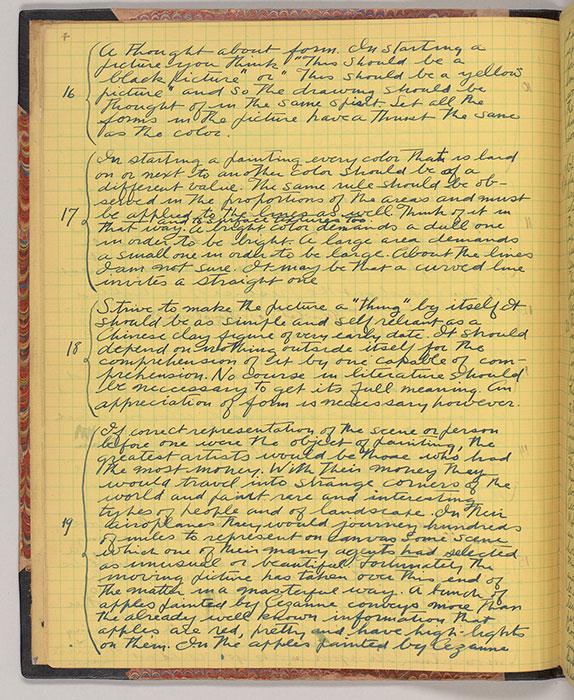 16
A thought about form. In starting a
picture you think "This should be a
black picture" or "This should be a yellow
picture" and so the drawing should be
thought of in the same spirit. Let all the
forms in the picture have a thrust the same
as the color.
17
In starting a painting every color that is laid
on or next to another color should be of a
different value. The same rule should be ob-
served in the proportions of the areas and must
be applied to the lines as well. Think of it in
and to virtual figures too.
that way. A bright color demands a dull one
in order to be bright. A large area demands
a small one in order to be large. About the lines
I am not sure. It may be that a curved line
invites a straight one
18
Strive to make the picture a "thing" by itself. It
should be as simple and self reliant as a
Chinese clay figure of very early date. It should
depend on nothing outside itself for the
comprehension of it by one capable of com-
prehension. No course in literature should
be neccessary to get its full meaning. An
appreciation of form is neccessary however.
19
If correct representation of the scene or person
before one were the object of painting, the
greatest artists would be those who had
the most money. With their money they
would travel into strange corners of the
world and paint rare and interesting
types of people and of landscape. In their
airoplanes they would journey hundreds
of miles to represent on canvas some scene
which one of their many agents had selected
as unusual or beautiful. Fortunately the
moving picture has taken over this end of
the match in a masterful way. A bunch of
apples painted by Cezanne conveys more than
the already well known information that
apples are red, pretty and have high-lights
on them. In the apples painted by Cezanne